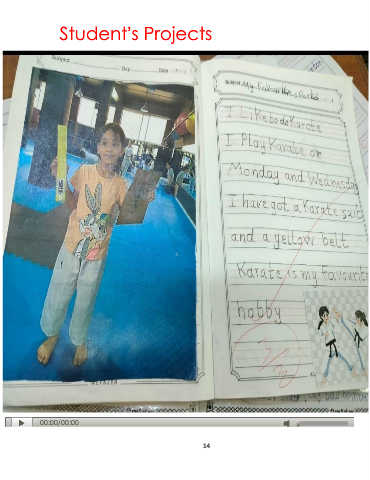 Student's Projects
Subject
Day
Date
My Favourite
I Like to do Karate
I Play Karate on
Monday and Wednesday
I have got a Karate suit
and a yellow belt
Karate is my favourite
hobby
00:00/00:00
14